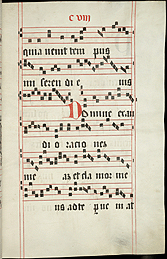 c viii
quia venit tem pus
mi seren di e ius
Domine exau
di o racio nez
me az et cla mor me
us ad te